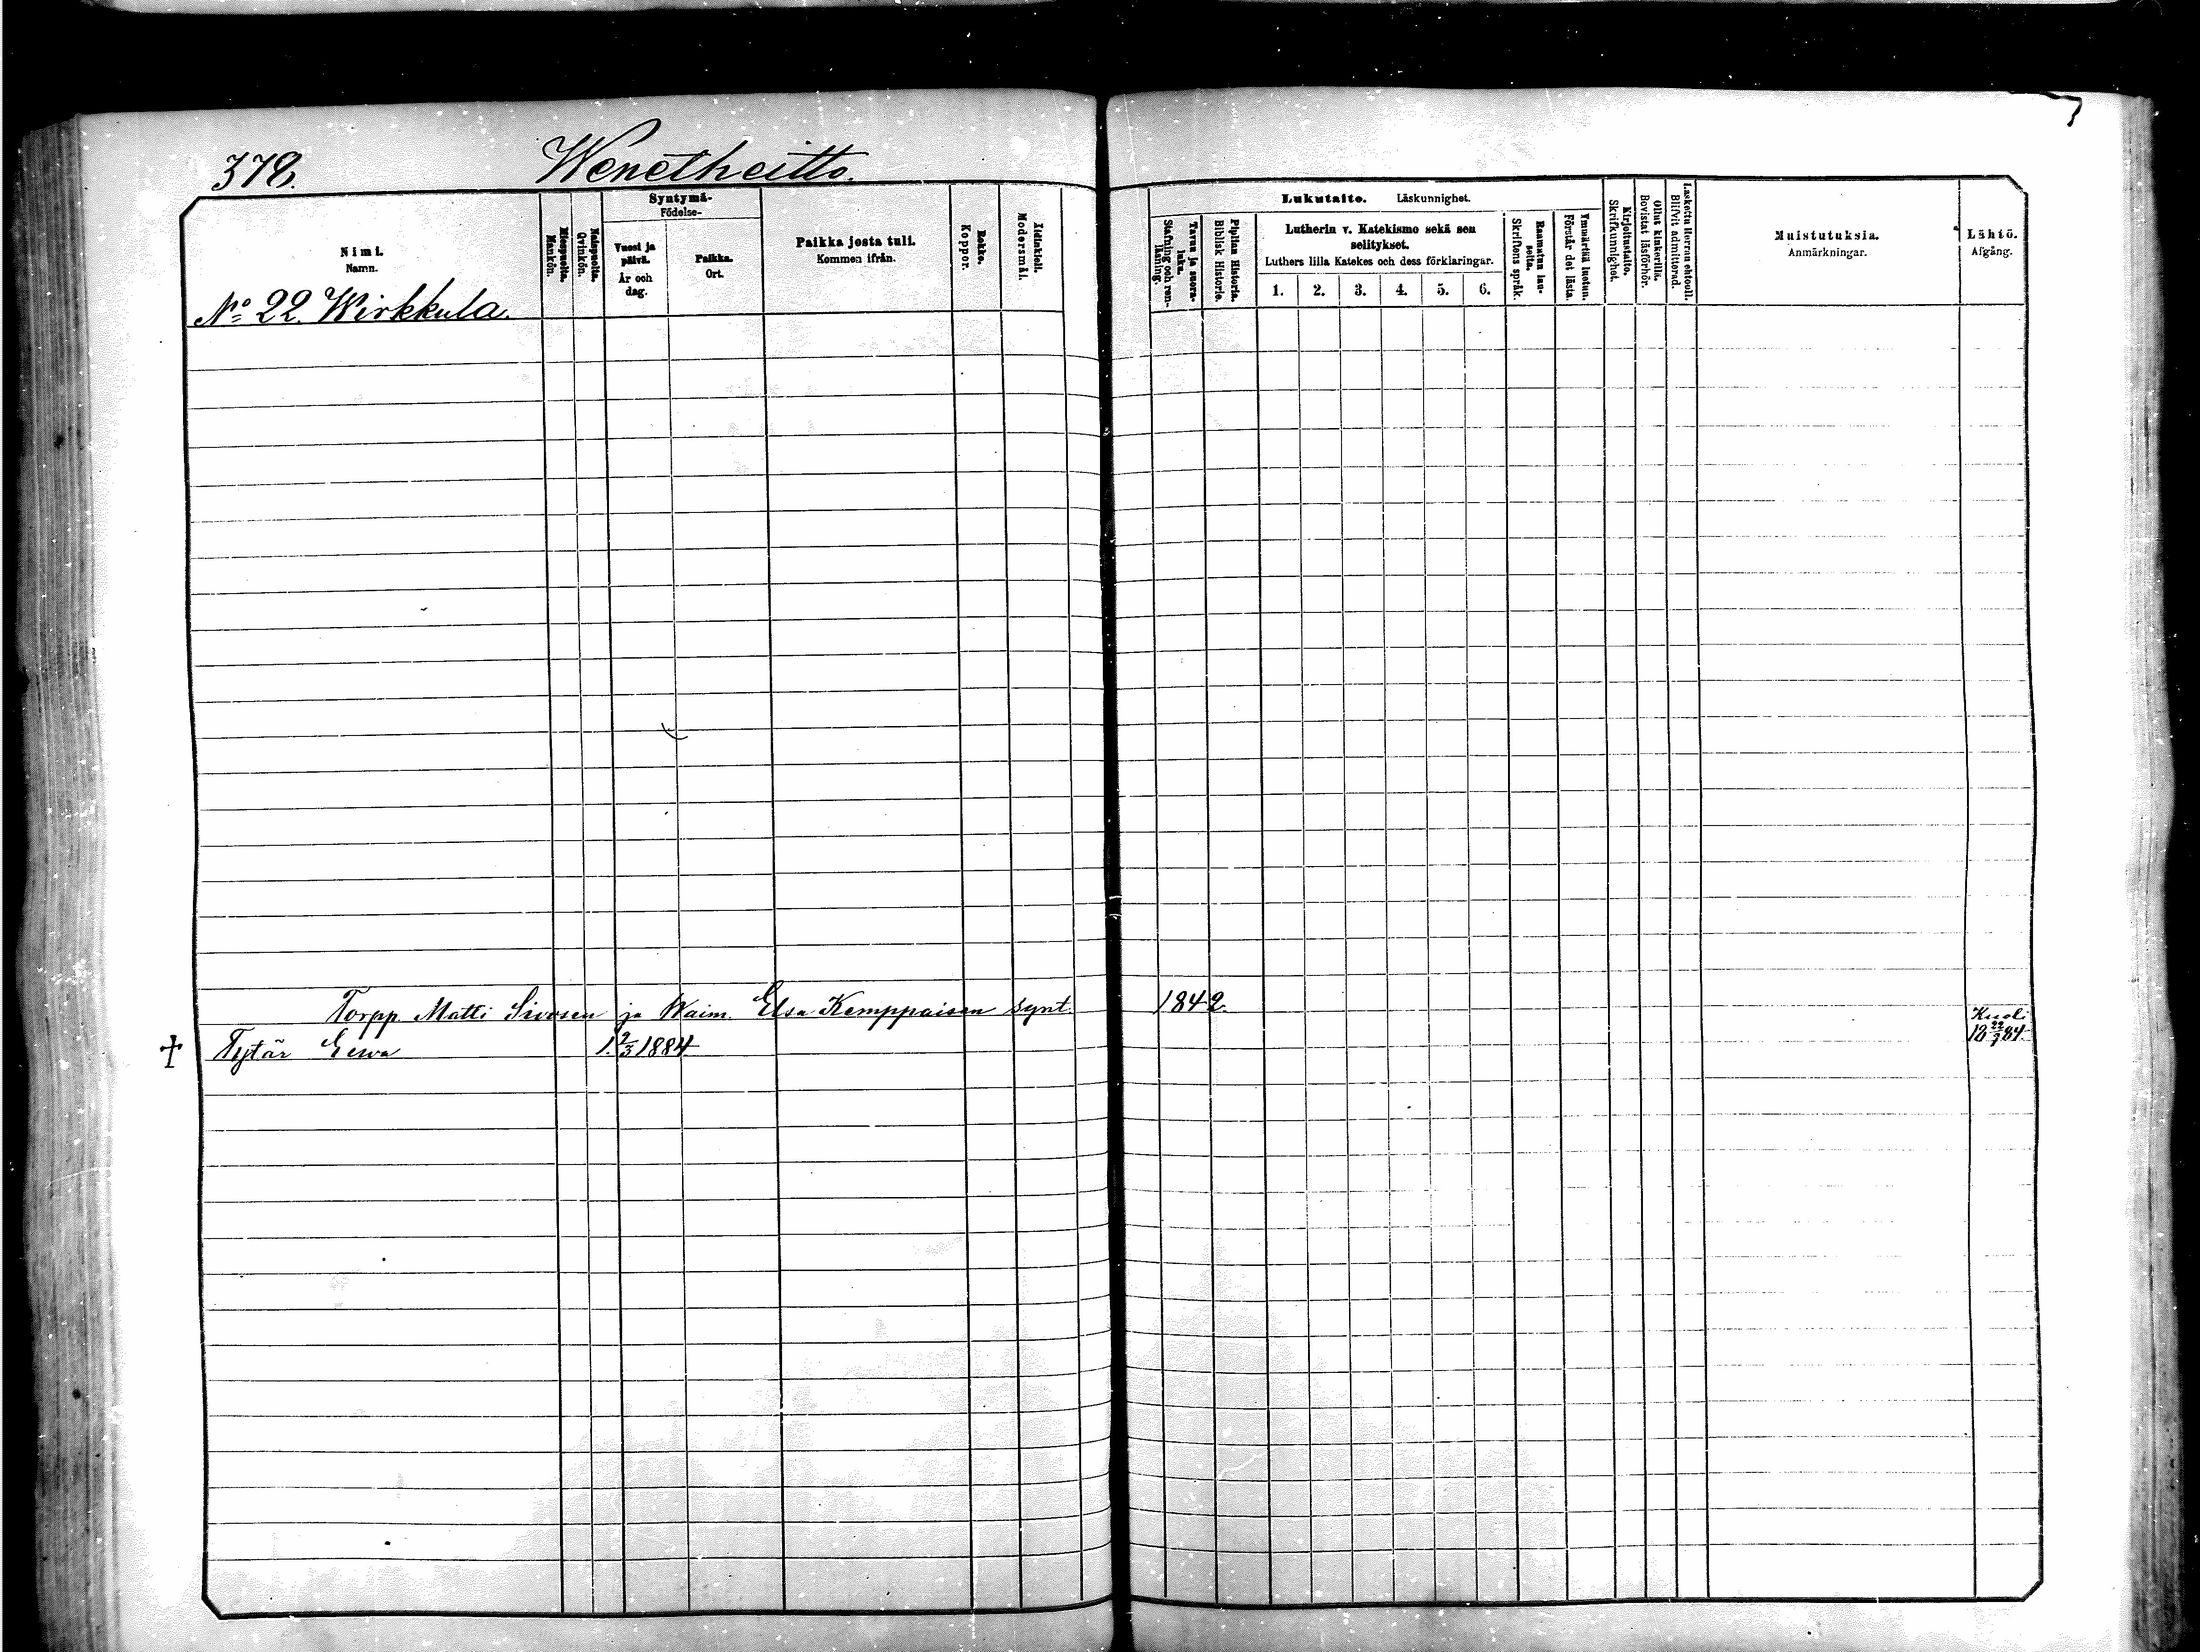 378.
Wenetheitto.
Nimi.
Namn.
Miespuolta.
Mankön.
Naispuolta.
Qvinkön.
Syntymä-
Födelse-
Vuosi ja päivä.
År och dag.
Paikka.
Ort.
Paikka josta tuli.
Kommen ifrån.
Rokko.
Koppor.
Äidinkieli.
Modersmål.
Lukutaito. Läskunnighet.
Tavuu ja suora-luku.
Stafning och ren-läsning.
Piplian Historia.
Biblisk Historie.
Lutherin v. Katekismo sekä sen
selitykset.
Luthers lilla Katekes och dess förklaringar.
1. 2. 3. 4. 5. 6.
Raamatun lau-seita.
Skriftens språk.
Ymmärtää luetun.
Förstår det lästa.
Kirjoitustaito.
Skrifkunnighet.
Ollut kinkerillä.
Bovistat läsförhör.
Laskettu Herran ehtooll.
Blifvit admitterad.
Muistutuksia.
Anmärkningar.
Lähtö.
Afgång.
No 22. Wirkkula.
Torpp. Matti Sivosen ja Waim. Elsa Kemppaisen synt. 1842.
Tytär Eewa 1. 2/3 1884
Kuoli
18 22/7 84.